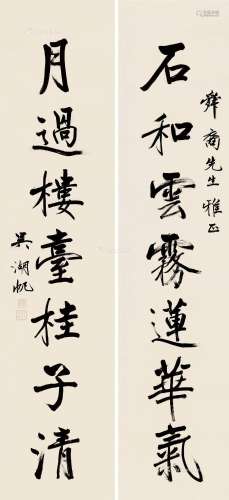 舜裔先生雅正
石和雲霧蓮華氣
月過樓臺桂子清
吴湖帆